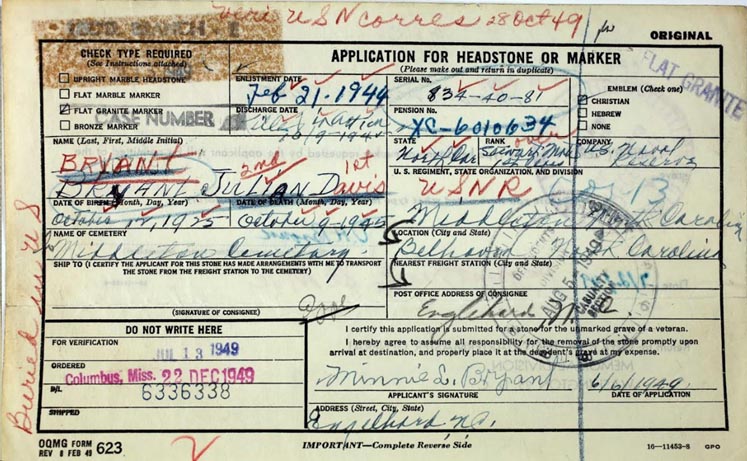 Veri USN Corres 28 Oct 49
ORIGINAL
CHECK TYPE REQUIRED
(See Instructions attached)
UPRIGHT MARBLE HEADSTONE
FLAT MARBLE MARKER
FLAT GRANITE MARKER
BRONZE MARKER
CASE NUMBER
APPLICATION FOR HEADSTONE OR MARKER
(Please make out and return in duplicate)
ENLISTMENT DATE
Feb 21-1944
SERIAL No.
834-40-81
DISCHARGE DATE
10-9-1945
PENSION No.
XC-6010634
EMBLEM (Check one)
CHRISTIAN
HEBREW
NONE
FLAT GRANITE
STATE
RANK
COMPANY
U.S. Naval
U. S. REGIMENT, STATE ORGANIZATION, AND DIVISION
USNR
NAME (Last, First, Middle Initial)
BRYANT
2nd
1st
BRYANT, JULIAN Davis
DATE OF BIRTH (Month, Day, Year)
October 17, 1925
DATE OF DEATH (Month, Day, Year)
October 9-1945
Middletown North Carolina
NAME OF CEMETERY
Middletown Cemetery
LOCATION (City and State)
Belhaven North Carolina
SHIP TO (I CERTIFY THE APPLICANT FOR THIS STONE HAS MADE ARRANGEMENTS WITH ME TO TRANSPORT
THE STONE FROM THE FREIGHT STATION TO THE CEMETERY)
NEAREST FREIGHT STATION (City and State)
AUG 5-1949
(SIGNATURE OF CONSIGNEE)
POST OFFICE ADDRESS OF CONSIGNEE
Englehard
Buried in US
DO NOT WRITE HERE
FOR VERIFICATION
JUL 13 1949
ORDERED
Columbus, Miss. 22 DEC 1949
B/L
6336338
SHIPPED
I certify this application is submitted for a stone for the unmarked grave of a veteran.
I hereby agree to assume all responsibility for the removal of the stone promptly upon
arrival at destination, and properly place it at the decedent's grave at my expense.
Minnie L. Bryant
6/6/1949
APPLICANT'S SIGNATURE
DATE OF APPLICATION
ADDRESS (Street, City, State)
Engelhard N.C.
OQMG FORM
REV 8 FEB 49
623
IMPORTANT—Complete Reverse Side
16—11453-8 GPO